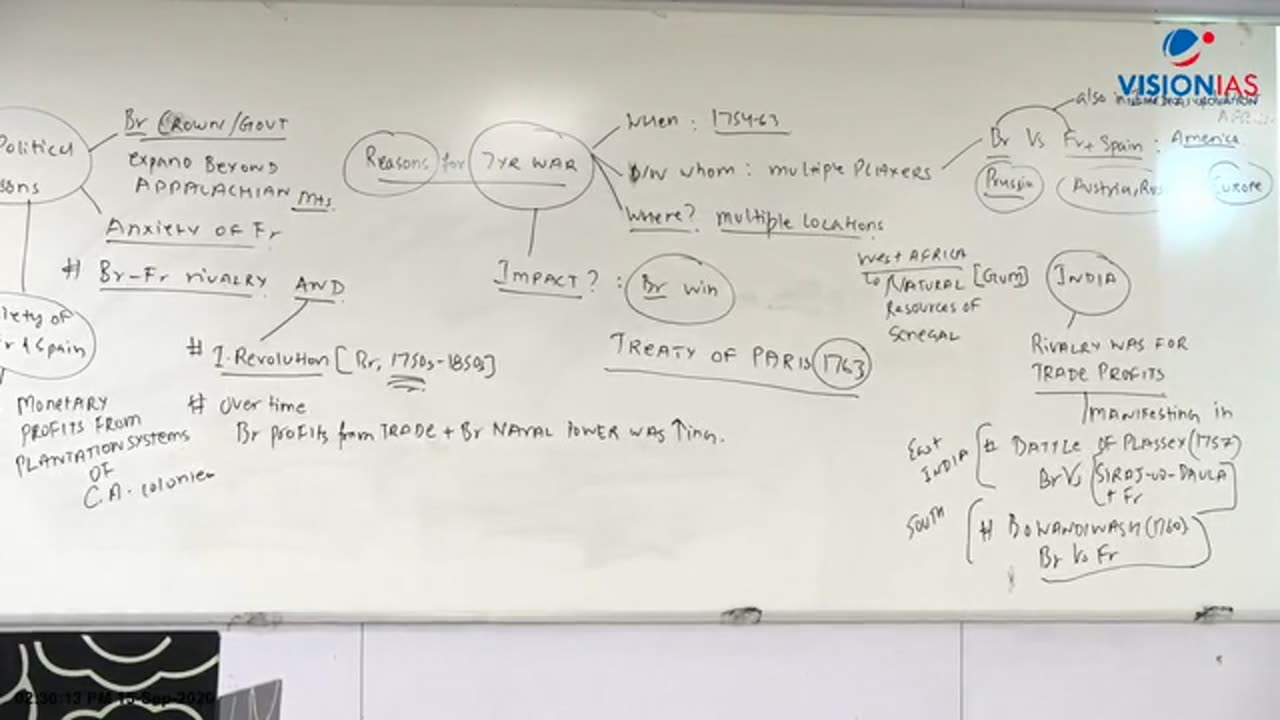 VISIONIAS
INSPIRING INNOVATION
Political
sons
Br CROWN/GOVT
EXPAND BEYOND
APPALACHIAN Mts
Anxiety of Fr
# Br-Fr rivalry AND
iety of
r & Spain
MONETARY
PROFITS FROM
PLANTATION SYSTEMS
OF
C.A. colonies
# I. Revolution [Br, 1750s-1850s]
# over time
Br profits from TRADE + Br NAVAL POWER WAS ↑ing.
Reasons for 7YR WAR
When : 1754-63
b/w whom : multiple PLAYERS
Where? multiple locations
IMPACT? : Br win
TREATY OF PARIS 1763
also in
Br Vs Fr + Spain : America
Prussia Austria, Rus Europe
West AFRICA
to NATURAL [Gum]
Resources of
Senegal
INDIA
RIVALRY WAS FOR
TRADE PROFITS
MANIFESTING in
East INDIA # BATTLE OF PLASSEY (1757)
Br Vs SIRAJ-UD-DAULA
+ Fr
SOUTH # BoWANDIWASH (1760)
Br Vs Fr
02:36:13 PM 15-Sep-2020